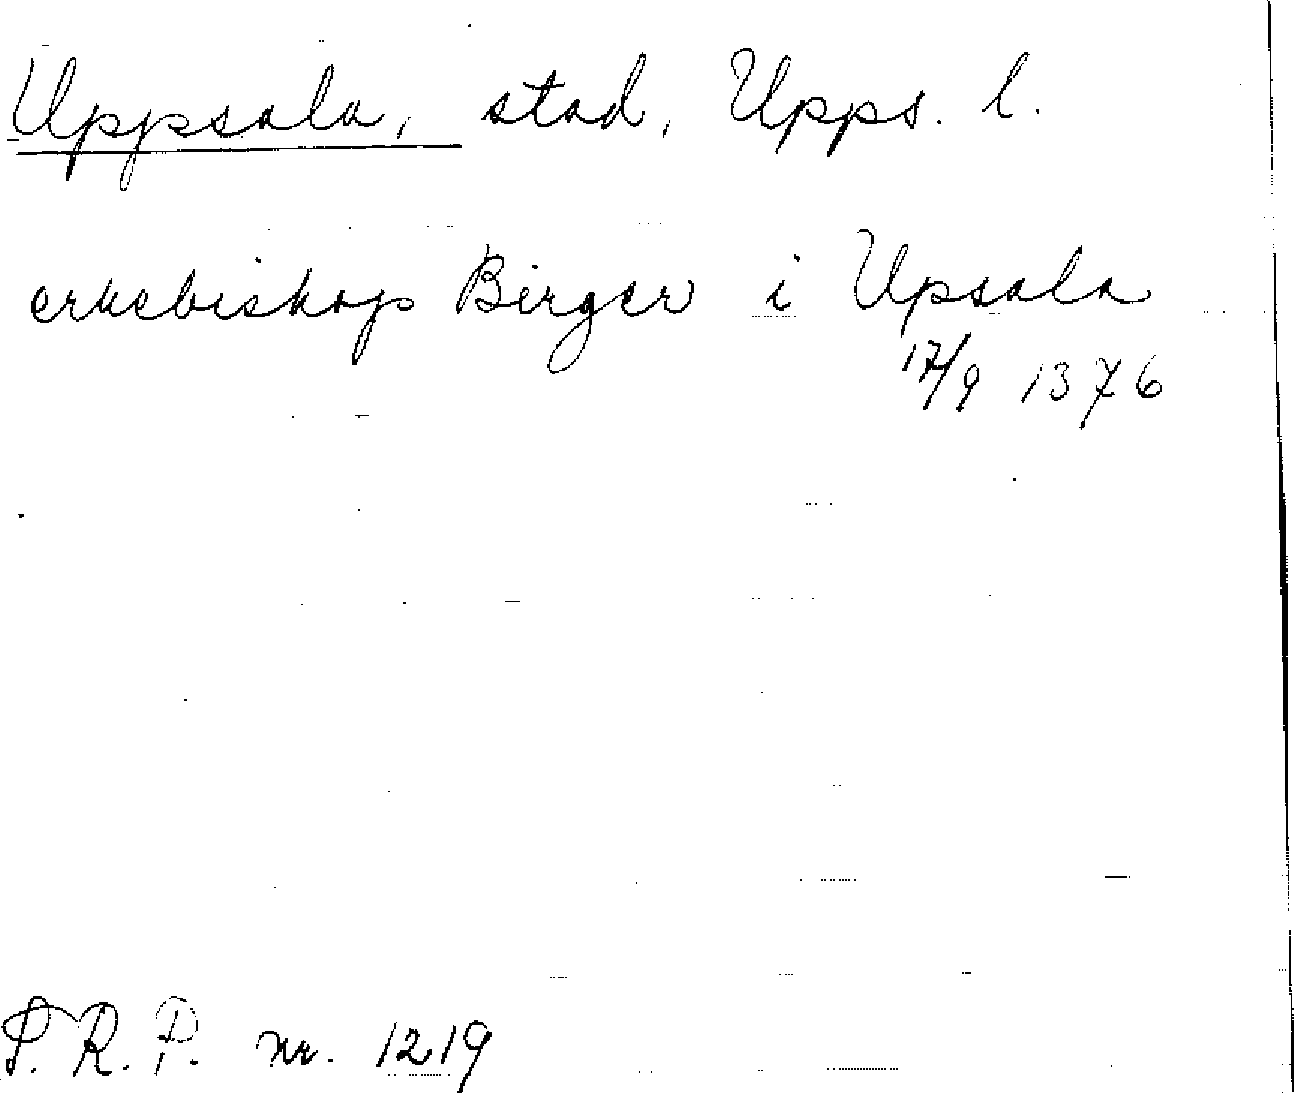 Uppsala, stad, Upps. l.
erkebiskop Birger i Upsala
17/9 1376
P. R. P. nr. 1219